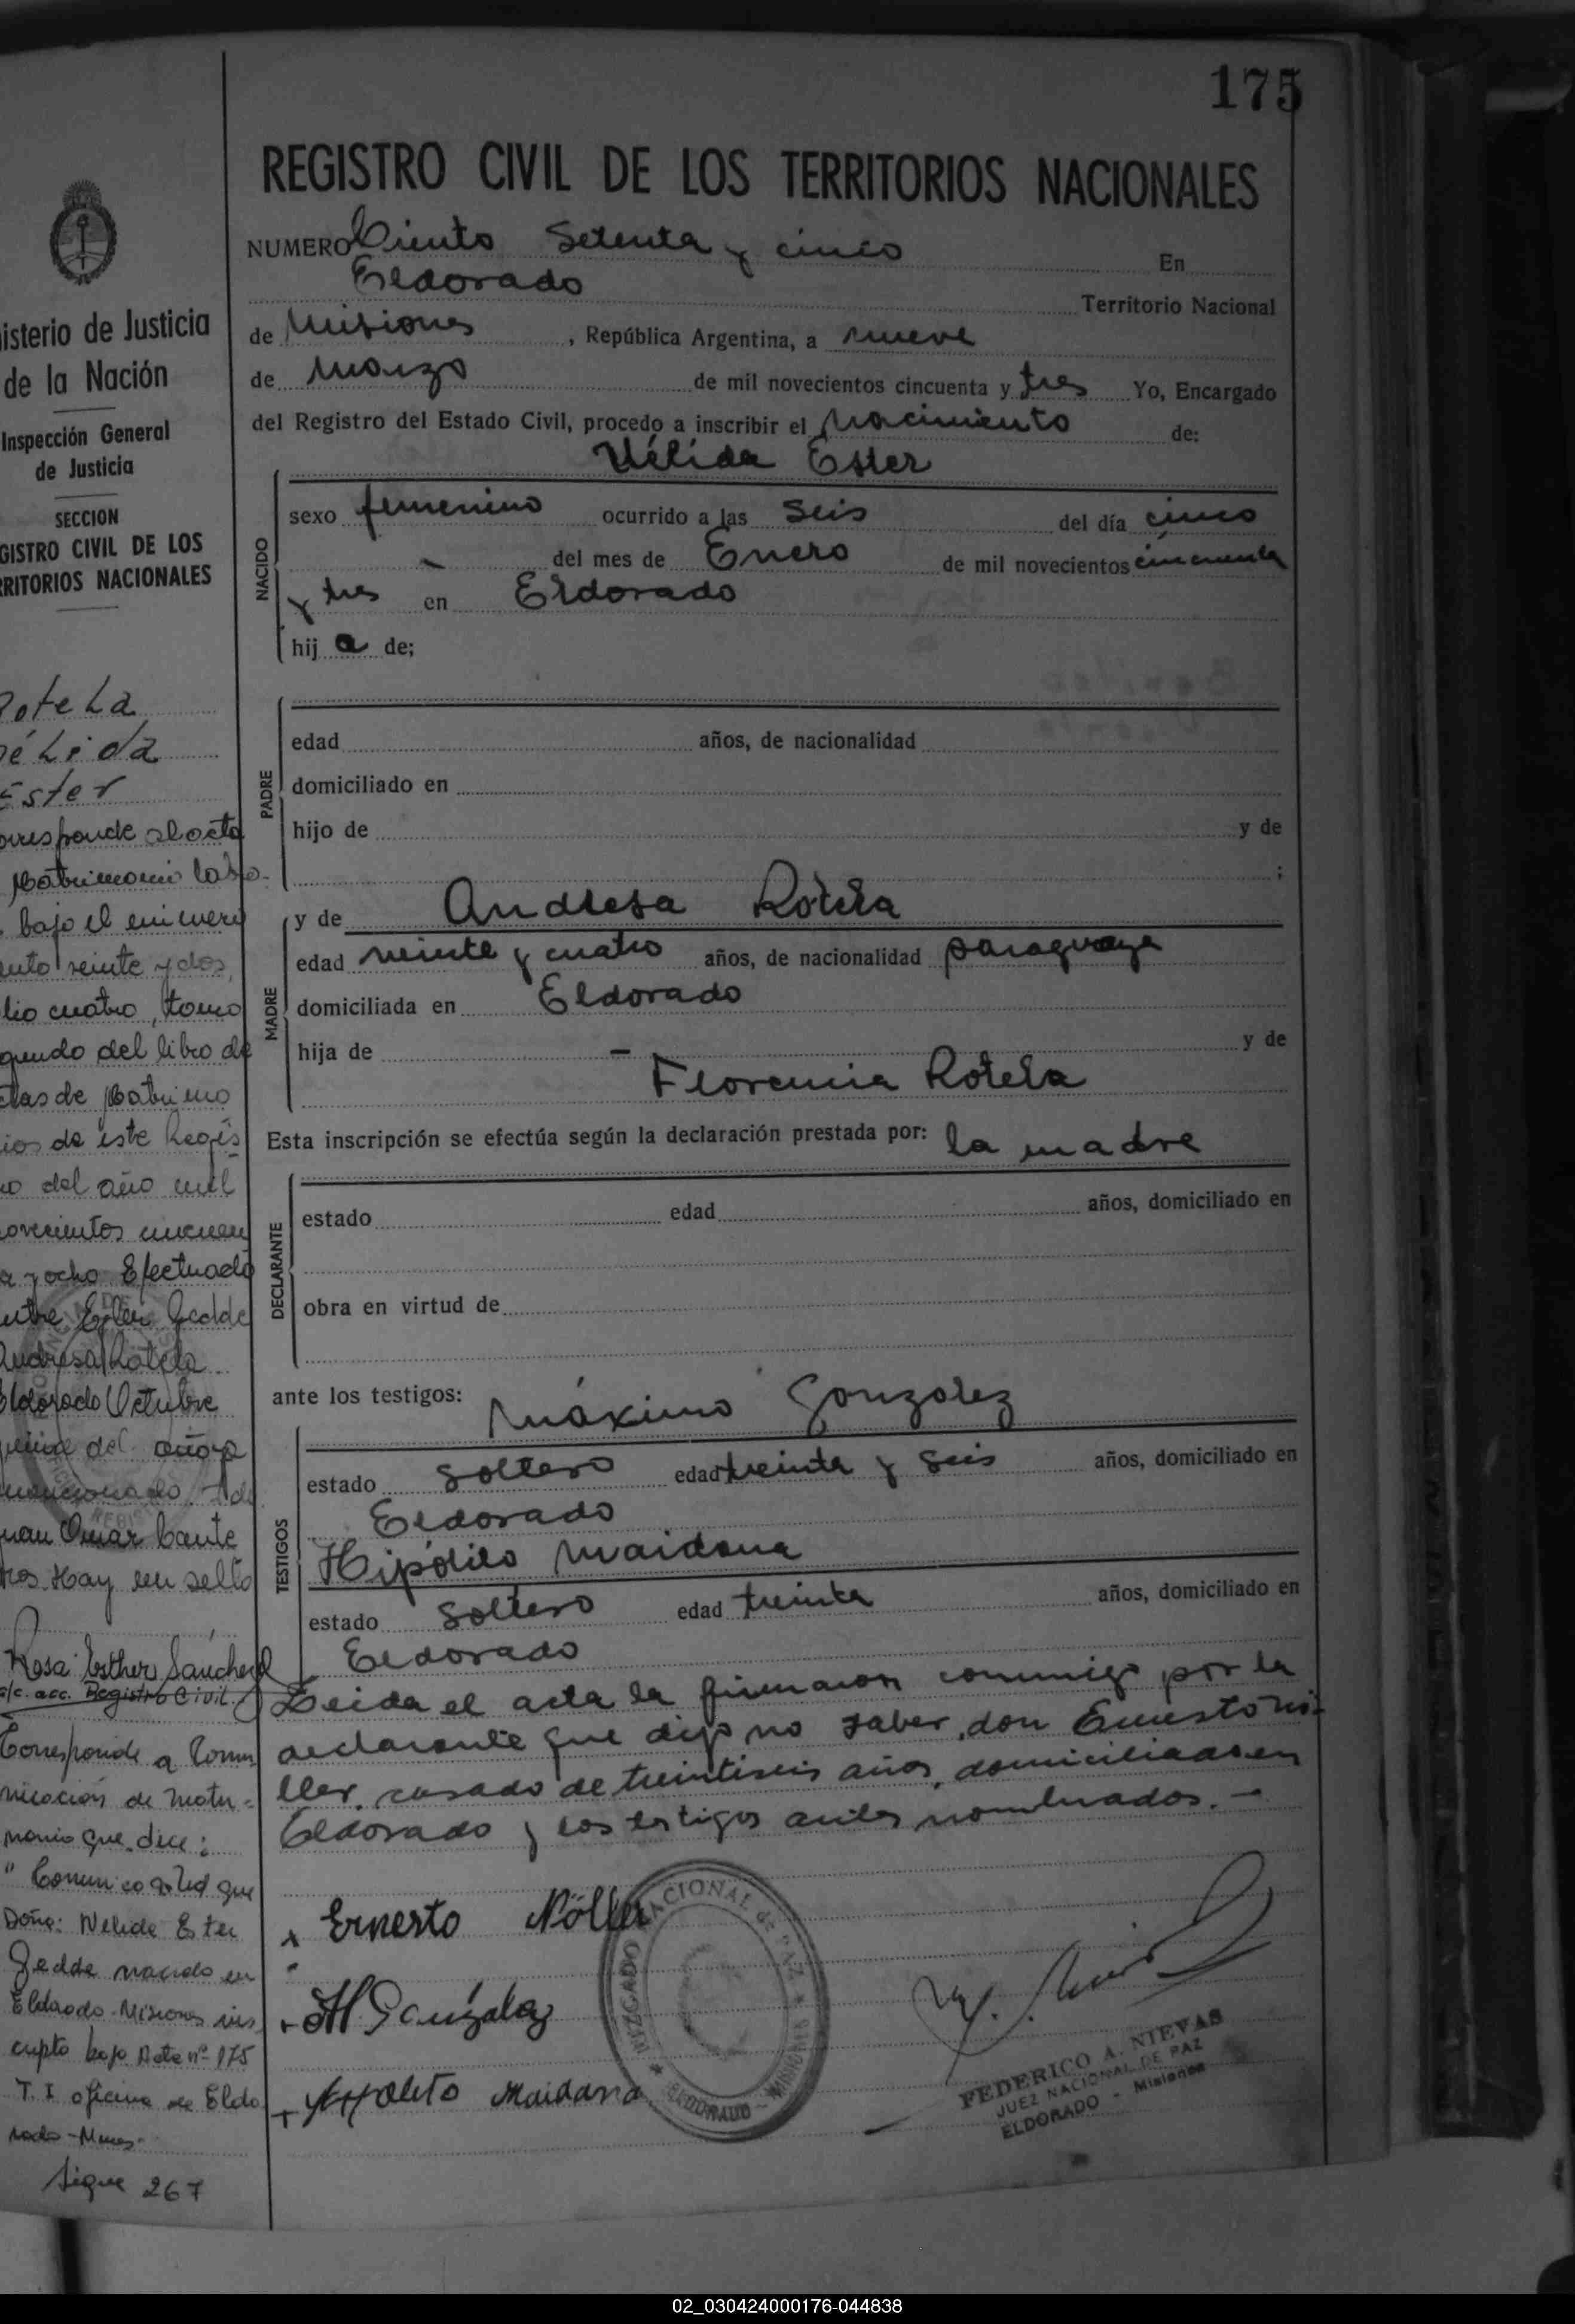 175
REGISTRO CIVIL DE LOS TERRITORIOS NACIONALES
NUMERO Ciento Setenta y cinco En
Eldorado Territorio Nacional
de Misiones, República Argentina, a nueve
de Marzo de mil novecientos cincuenta y tres Yo, Encargado
del Registro del Estado Civil, procedo a inscribir el Nacimiento de:
Nélida Ester
NACIDO
sexo femenino ocurrido a las seis del día cinco
- del mes de Enero de mil novecientos cincuenta
y tres en Eldorado
hij a de;
PADRE
edad años, de nacionalidad
domiciliado en
hijo de y de
;
MADRE
y de Andresa Rotela
edad veinte y cuatro años, de nacionalidad paraguaya
domiciliada en Eldorado
hija de - y de
Florencia Rotela
Esta inscripción se efectúa según la declaración prestada por: la madre
DECLARANTE
estado edad años, domiciliado en
obra en virtud de
ante los testigos: Máximo Gonzalez
TESTIGOS
estado soltero edad treinta y seis años, domiciliado en
Eldorado
Hipólito Maidana
estado soltero edad treinta años, domiciliado en
Eldorado
Leida el acta la firmaron conmigo por la
declarante que dijo no saber, don Ernesto Nö-
ller, casado de treintiseis años, domiciliado en
Eldorado y los testigos antes nombrados. -
Ernesto Nöller
M Gonzalez
Hipolito Maidana
JUZGADO NACIONAL de PAZ
ELDORADO - MISIONES
FEDERICO A. NIEVAS
JUEZ NACIONAL DE PAZ
ELDORADO - Misiones
isterio de Justicia
de la Nación
Inspección General
de Justicia
SECCION
GISTRO CIVIL DE LOS
RRITORIOS NACIONALES
Rotela
nélida
Ester
orresponde al acta
Matrimonio labra-
bajo el número
ento veinte y dos,
lio cuatro, tomo
gundo del libro de
ctas de Matrimo
nios de este Regis
ro del año mil
novecientos cincuen
ta y ocho Efectuado
entre Gedde
Andresa Rotela
Eldorado Octubre
del año
mencionado
Juan Omar Cante
ros Hay un sello
Rosa Esther Sanchez
a/c. acc. Registro Civil.
Corresponde a Comu
nicación de Matri-
monio que dice:
" Comunico a Ud que
Doña: Nelida Ester
Gedde nacida en
Eldorado-Misiones ins
cripta bajo Acta nº 175
T. I oficina de Eldo
rado - Mnes-
Sigue 267
02_030424000176-044838